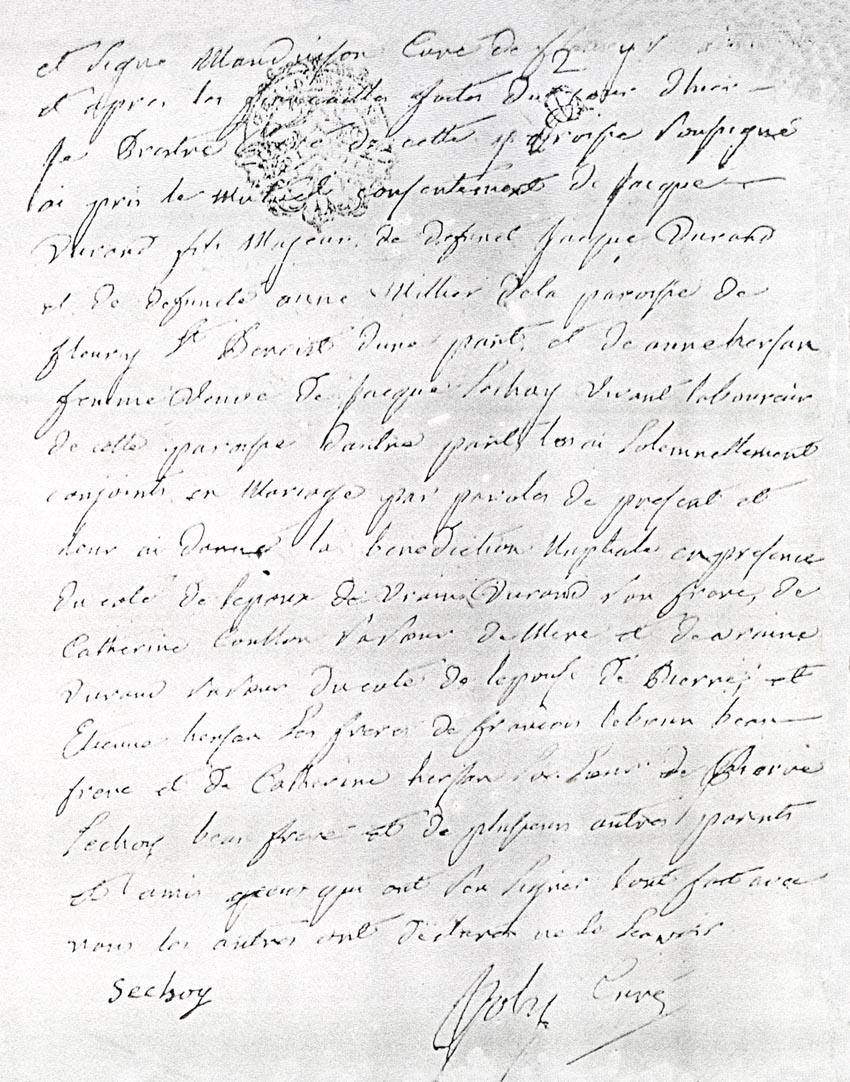 et signé Curé de
et apres les fiancailles faites du jour d'hier
Je Prestre Curé de cette paroisse soussigné
ai pris le mutuel consentement de Jacque
Durand fils Majeur de defunct Jacque Durand
et de defuncte anne Millier dela paroisse de
fleury St Benoist dune part, et de anne hersan
femme veuve de Jacque Sechoy vivant laboureur
de cette paroisse dautre part, les ai solemnellement
conjoints en Mariage par paroles de present et
leur ai donné la benediction Nuptiale en presence
du coté de lepoux de Vrain Durand son frere, de
Catherine Coullon sa sœur de Mere et de
Durand sa sœur du coté de lepouse de Pierre, et
Etienne hersan ses freres de francois lebrun beau
frere et de Catherine hersan sa sœur de Pierre
Sechoy beau frere et de plusieurs autres parents
et amis qui ont sçu signer lont fait avec
nous les autres ont declaré ne le sçavoir
Sechoy Curé